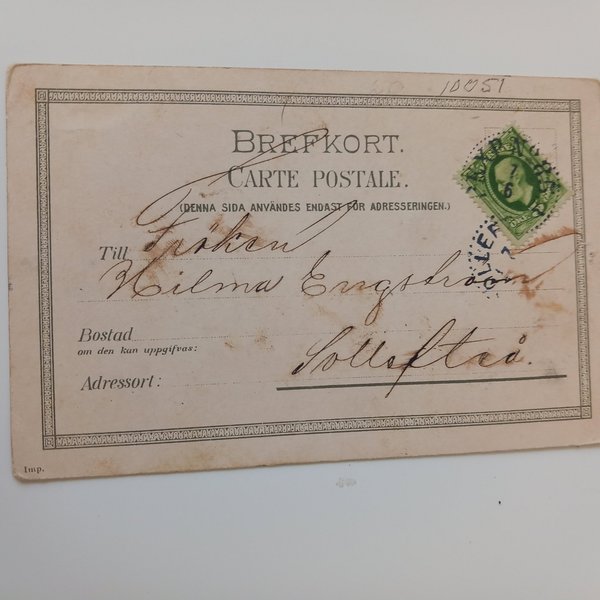 10051
BREFKORT.
CARTE POSTALE.
(DENNA SIDA ANVÄNDES ENDAST FÖR ADRESSERINGEN.)
Till Fröken
Hilma Engström
Bostad
om den kan uppgifvas:
Sollefteå.
Adressort:
Imp.